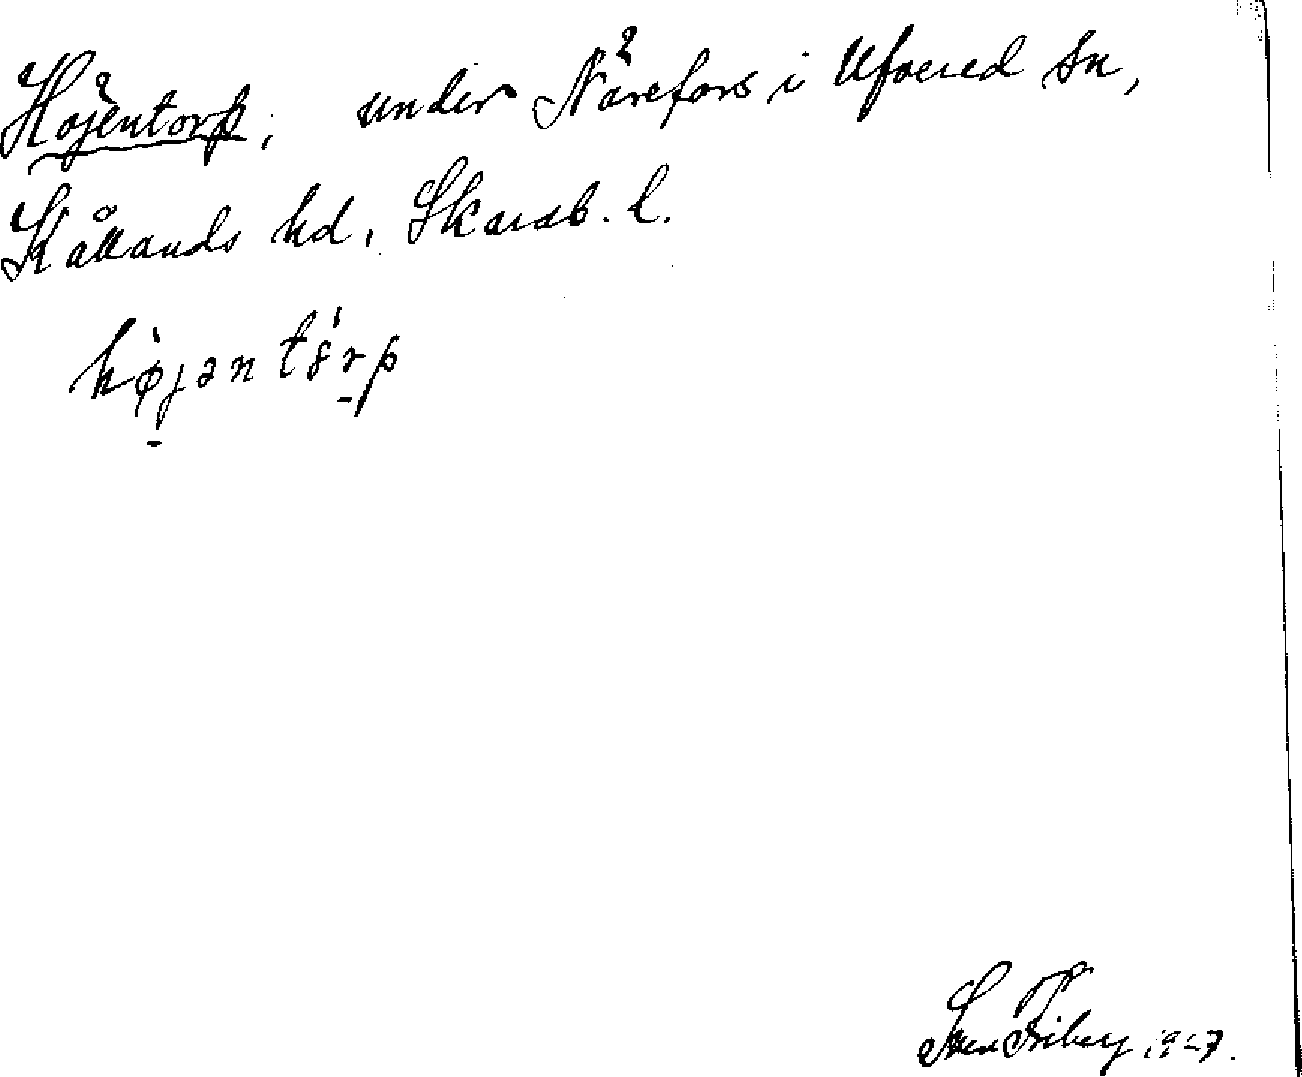 Höjentorp, under Nårefors i Ufvered sn,
Kållands hd. Skarab. l.
højəntórp
Sven Friberg 1927.